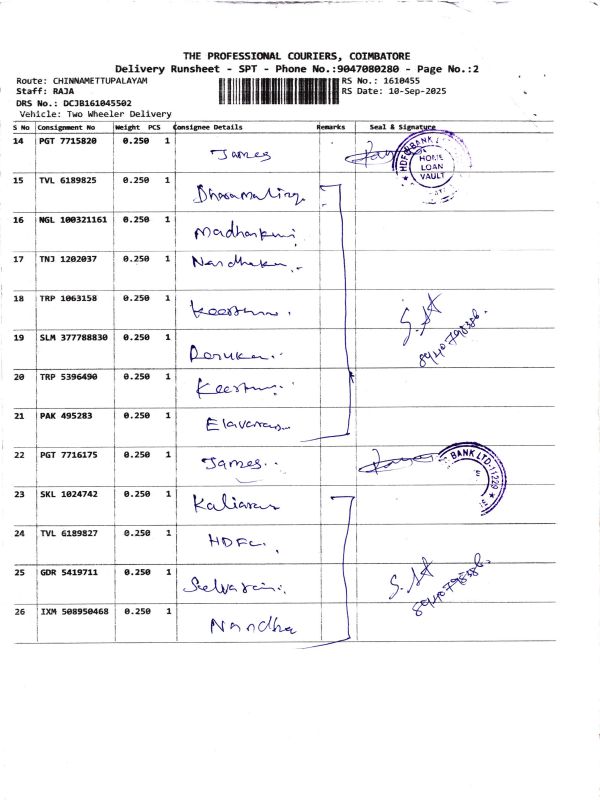 THE PROFESSIONAL COURIERS, COIMBATORE
Delivery Runsheet - SPT - Phone No.:9047080280 - Page No.:2
Route: CHINNAMETTUPALAYAM RS No.: 1610455
Staff: RAJA RS Date: 10-Sep-2025
DRS No.: DCJB161045502
Vehicle: Two Wheeler Delivery
S No Consignment No Weight PCS Consignee Details Remarks Seal & Signature
14 PGT 7715820 0.250 1 James
HDFC BANK
HOME
LOAN
VAULT
15 TVL 6189825 0.250 1 Dharamaling
16 NGL 100321161 0.250 1
17 TNJ 1202037 0.250 1 Nandhaku
18 TRP 1063158 0.250 1 Keerthu
S. St
19 SLM 377788830 0.250 1
20 TRP 5396490 0.250 1 Keerthu
21 PAK 495283 0.250 1
22 PGT 7716175 0.250 1 James
BANK LTD-11229
23 SKL 1024742 0.250 1
24 TVL 6189827 0.250 1 HDFC
25 GDR 5419711 0.250 1
S. St
26 IXM 508950468 0.250 1 Nandha